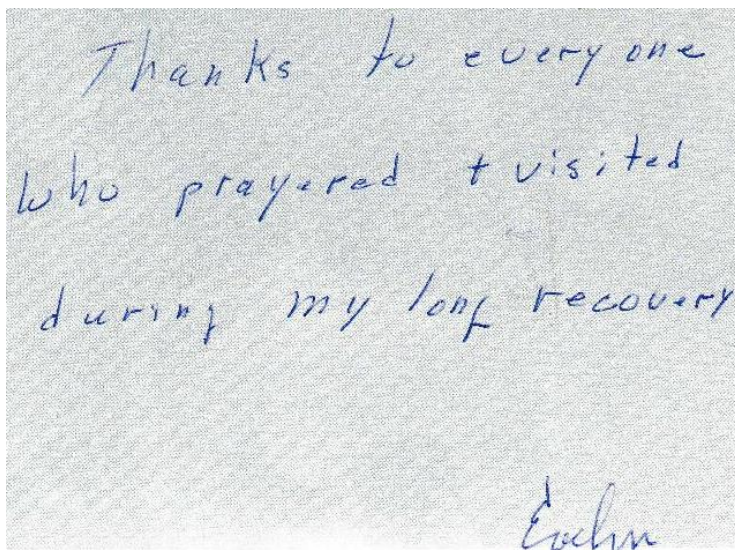 Thanks to everyone
who prayered + visited
during my long recovery